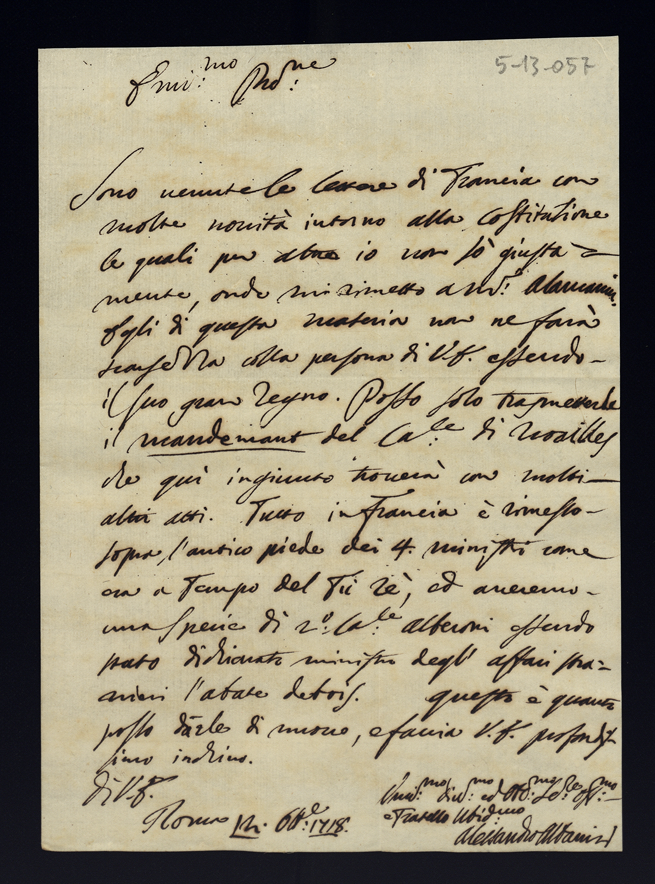 5-13-057
Emi:mo Pro:ne
Sono venute le lettere di Francia con
molte novità intorno alla Costitutione
le quali per altro io non sò giusta=
mente, onde mi rimetto a
Egli di questa materia non ne farà
colla persona di V.E. essendo-
il suo gran regno. Posso solo trasmetterle
il mandemant del Ca:le di Noailles
che quì ingiunto troverà con molti
altri atti. Tutto in Francia è rimesso-
sopra l'antico piede dei 4. ministri come
era a tempo del fù rè, ed averemo-
una specie di 2:o Ca:le Alberoni essendo
stato dichiarato ministro degl'affari stra=
nieri l'abate debois. questo è quanto
posso darle di nuovo, e faccio V.E. profondis
simo inchino.
di V.E.
Roma 8b:e 1718.
Um:mo div:mo ed Obb:mo
e Fratello
Alessandro Albani